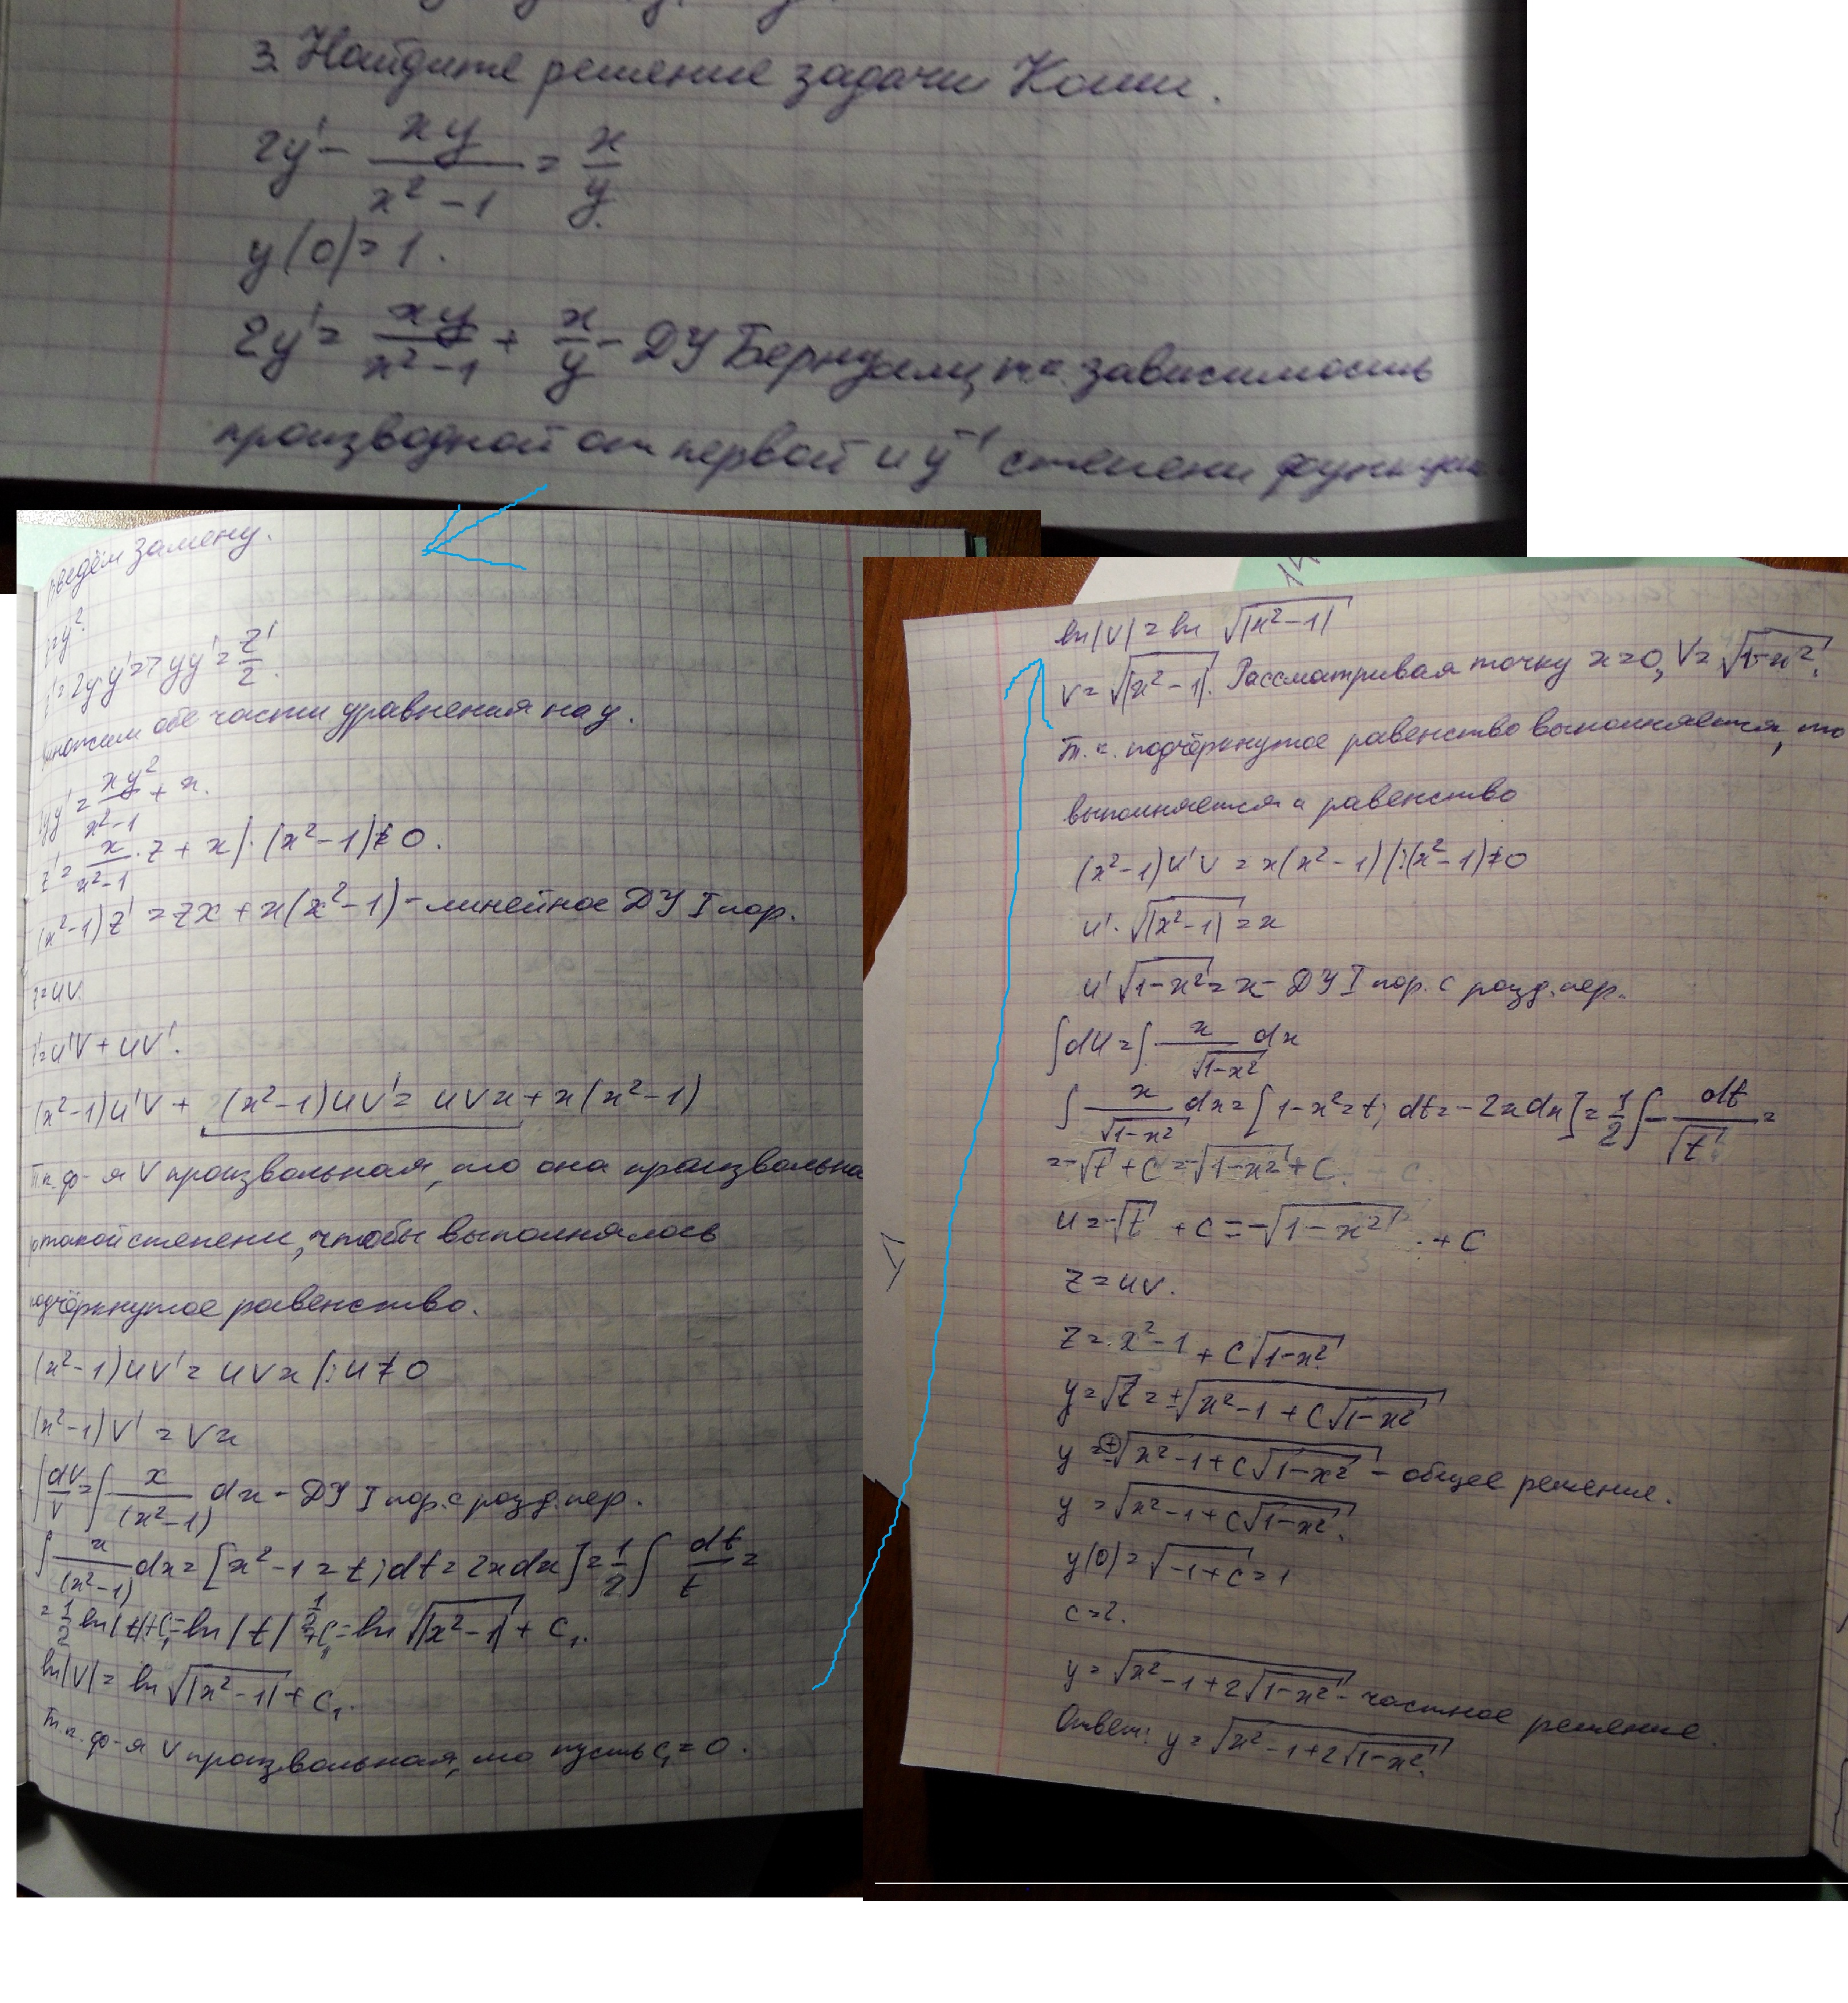 3. Найдите решение задачи Коши.
2y' - xy/(x²-1) = x/y
y(0)=1.
2y' = xy/(x²-1) + x/y - ДУ Бернулли, т.к. зависимость
производной от первой и y⁻¹ степени функции
введём замену.
z=y².
z'=2y·y' => yy' = z'/2.
умножим обе части уравнения на y.
2yy' = xy²/(x²-1) + x.
z' = x/(x²-1)·z + x |·(x²-1)≠0.
(x²-1)z' = zx + x(x²-1) - линейное ДУ I пор.
z=uv.
z'=u'v + uv'.
(x²-1)u'v + (x²-1)uv' = uvx + x(x²-1)
Т.к. ф-я v произвольная, то она произвольна
в такой степени, чтобы выполнялось
подчёркнутое равенство.
(x²-1)uv' = uvx |:u≠0
(x²-1)v' = vx
∫dv/v = ∫x/(x²-1) dx - ДУ I пор. с разд. пер.
∫x/(x²-1) dx = [x²-1=t; dt=2xdx] = 1/2 ∫ dt/t =
= 1/2 ln|t|+C₁ = ln|t|^(1/2)+C₁ = ln √|x²-1| + C₁.
ln|v| = ln √|x²-1| + C₁.
Т.к. ф-я v произвольная, то пусть C₁=0.
ln|v| = ln √|x²-1|
v = √|x²-1|. Рассматривая точку x=0, v=√(1-x²).
Т.к. подчёркнутое равенство выполняется, то
выполняется и равенство
(x²-1)u'v = x(x²-1) |:(x²-1)≠0
u'·√|x²-1| = x
u'√(1-x²) = x - ДУ I пор. с разд. пер.
∫du = ∫ x/√(1-x²) dx
∫ x/√(1-x²) dx = [1-x²=t; dt=-2xdx] = 1/2 ∫ - dt/√t =
= -√t + C = -√(1-x²) + C.
u = -√t + C = -√(1-x²) + C
z = uv.
z = x²-1 + C√(1-x²)
y = √z = ±√(x²-1+C√(1-x²))
y = ±√(x²-1+C√(1-x²)) - общее решение.
y = √(x²-1+C√(1-x²)).
y(0) = √(-1+C) = 1
C=2.
y = √(x²-1+2√(1-x²)) - частное решение.
Ответ: y = √(x²-1+2√(1-x²)).